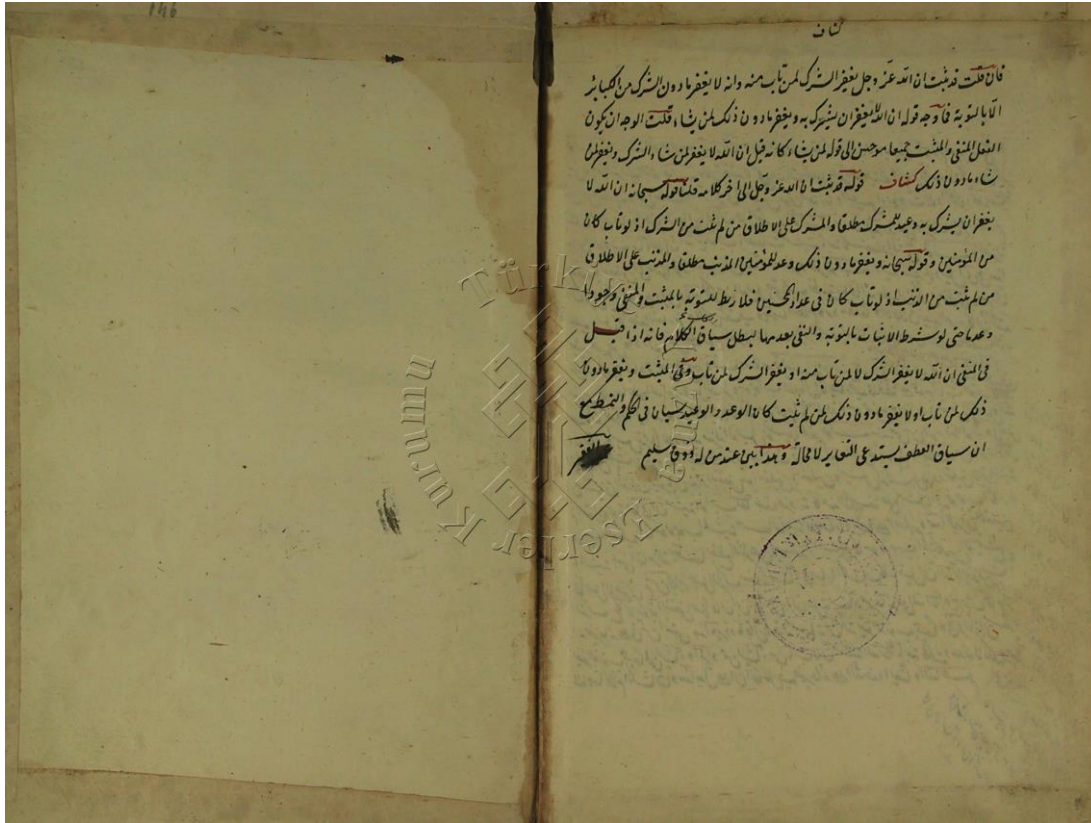 146
كشاف
فان قلت قد ثبت ان الله عز وجل يغفر الشرك لمن تاب منه وانه لا يغفر ما دون الشرك من الكبائر
الا بالتوبة فما وجه قوله ان الله لا يغفر ان يشرك به ويغفر ما دون ذلك لمن يشاء قلت الوجه ان يكون
الفعل المنفى والمثبت جميعا موجهين الى قوله لمن يشاء كانه قيل ان الله لا يغفر لمن شاء الشرك ويغفر لمن
شاء ما دون ذلك كشاف قوله قد ثبت ان الله عز وجل الى اخر كلامه قلنا قوله سبحانه ان الله لا
يغفر ان يشرك به وعيد للمشرك مطلقا والمشرك على الاطلاق من لم يتب من الشرك اذ لو تاب كان
من المؤمنين وقوله سبحانه ويغفر ما دون ذلك وعد للمؤمنين المذنب مطلقا والمذنب على الاطلاق
من لم يتب من الذنب اذ لو تاب كان فى عداد المحسنين فلا ربط للتوبة بالمثبت والمنفى وجودا
وعدما حتى لو شرط الاثبات بالتوبة والنفى بعدمها لبطل سياق الكلام فانه اذا قيل
فى المنفى ان الله لا يغفر الشرك لا لمن تاب منه او يغفر الشرك لمن تاب وفى المثبت ويغفر ما دون
ذلك لمن تاب او لا يغفر ما دون ذلك لمن لم يتب كان الوعد والوعيد سيان فى الحكم والنمط مع
ان سياق العطف يستدعى التغاير لا محالة وهذا بين عند من له ذوق سليم
Türkiye Yazma Eserler Kurumu